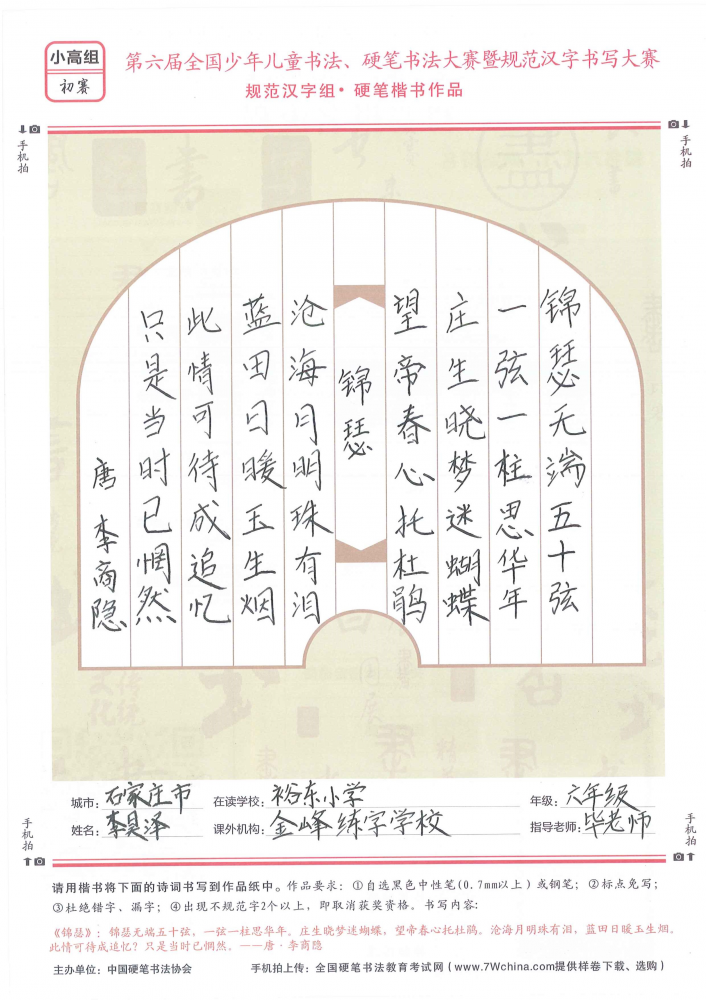 小高组
初赛
第六届全国少年儿童书法、硬笔书法大赛暨规范汉字书写大赛
规范汉字组·硬笔楷书作品
手机拍
手机拍
锦瑟无端五十弦
一弦一柱思华年
庄生晓梦迷蝴蝶
望帝春心托杜鹃
锦瑟
沧海月明珠有泪
蓝田日暖玉生烟
此情可待成追忆
只是当时已惘然
唐 李商隐
城市：石家庄市 在读学校：裕东小学 年级：六年级
姓名：李昊泽 课外机构：金峰练字学校 指导老师：毕老师
手机拍
手机拍
请用楷书将下面的诗词书写到作品纸中。作品要求：①自选黑色中性笔(0.7mm以上)或钢笔；②标点免写；
③杜绝错字、漏字；④出现不规范字2个以上，即取消获奖资格。书写内容：
《锦瑟》：锦瑟无端五十弦，一弦一柱思华年。庄生晓梦迷蝴蝶，望帝春心托杜鹃。沧海月明珠有泪，蓝田日暖玉生烟。
此情可待成追忆？只是当时已惘然。——唐·李商隐
主办单位：中国硬笔书法协会 手机拍上传：全国硬笔书法教育考试网（www.7Wchina.com提供样卷下载、选购）